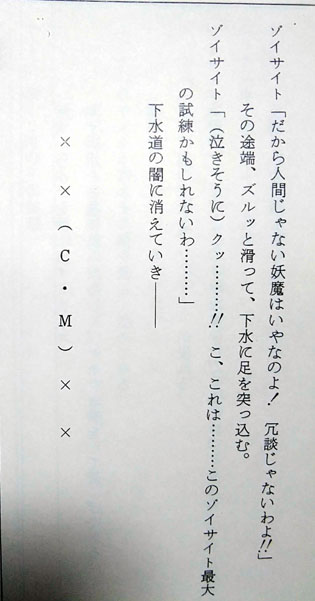 ゾイサイト「だから人間じゃない妖魔はいやなのよ！　冗談じゃないわよ!!」
その途端、ズルッと滑って、下水に足を突っ込む。
ゾイサイト「（泣きそうに）クッ………!!　こ、これは………このゾイサイト最大
の試練かもしれないわ………」
下水道の闇に消えていき――
×　×（C・M）×　×